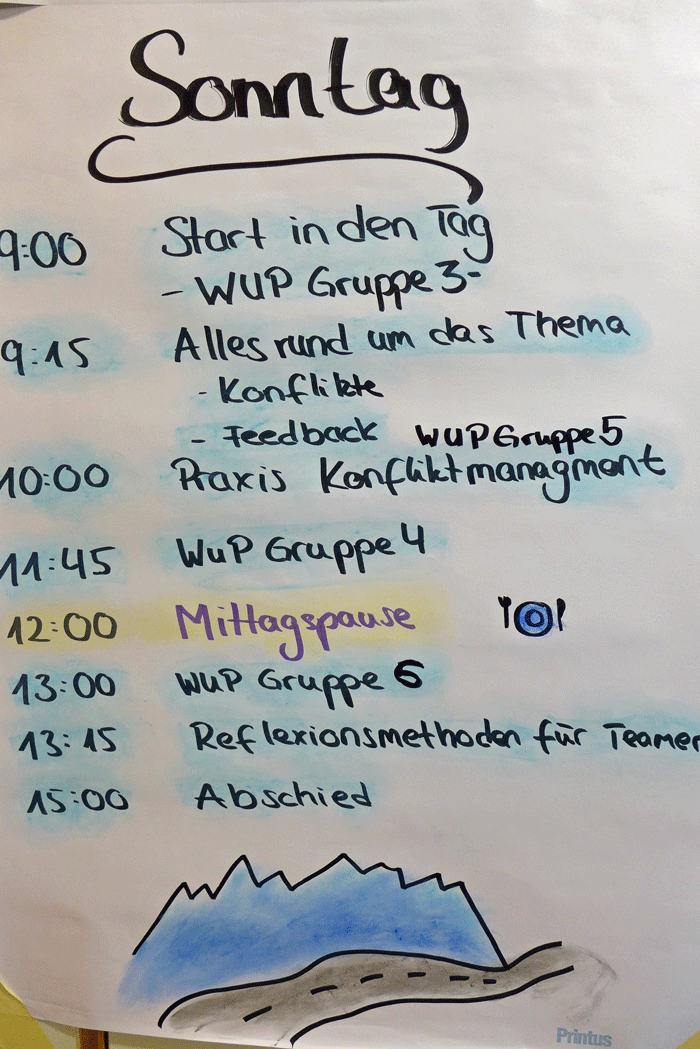 Sonntag
9:00 Start in den Tag
- WUP Gruppe 3-
9:15 Alles rund um das Thema
- Konflikte
- Feedback WUP Gruppe 5
10:00 Praxis Konfliktmanagment
11:45 WuP Gruppe 4
12:00 Mittagspause
13:00 WUP Gruppe 6
13:15 Reflexionsmethoden für Teamer
15:00 Abschied
Printus